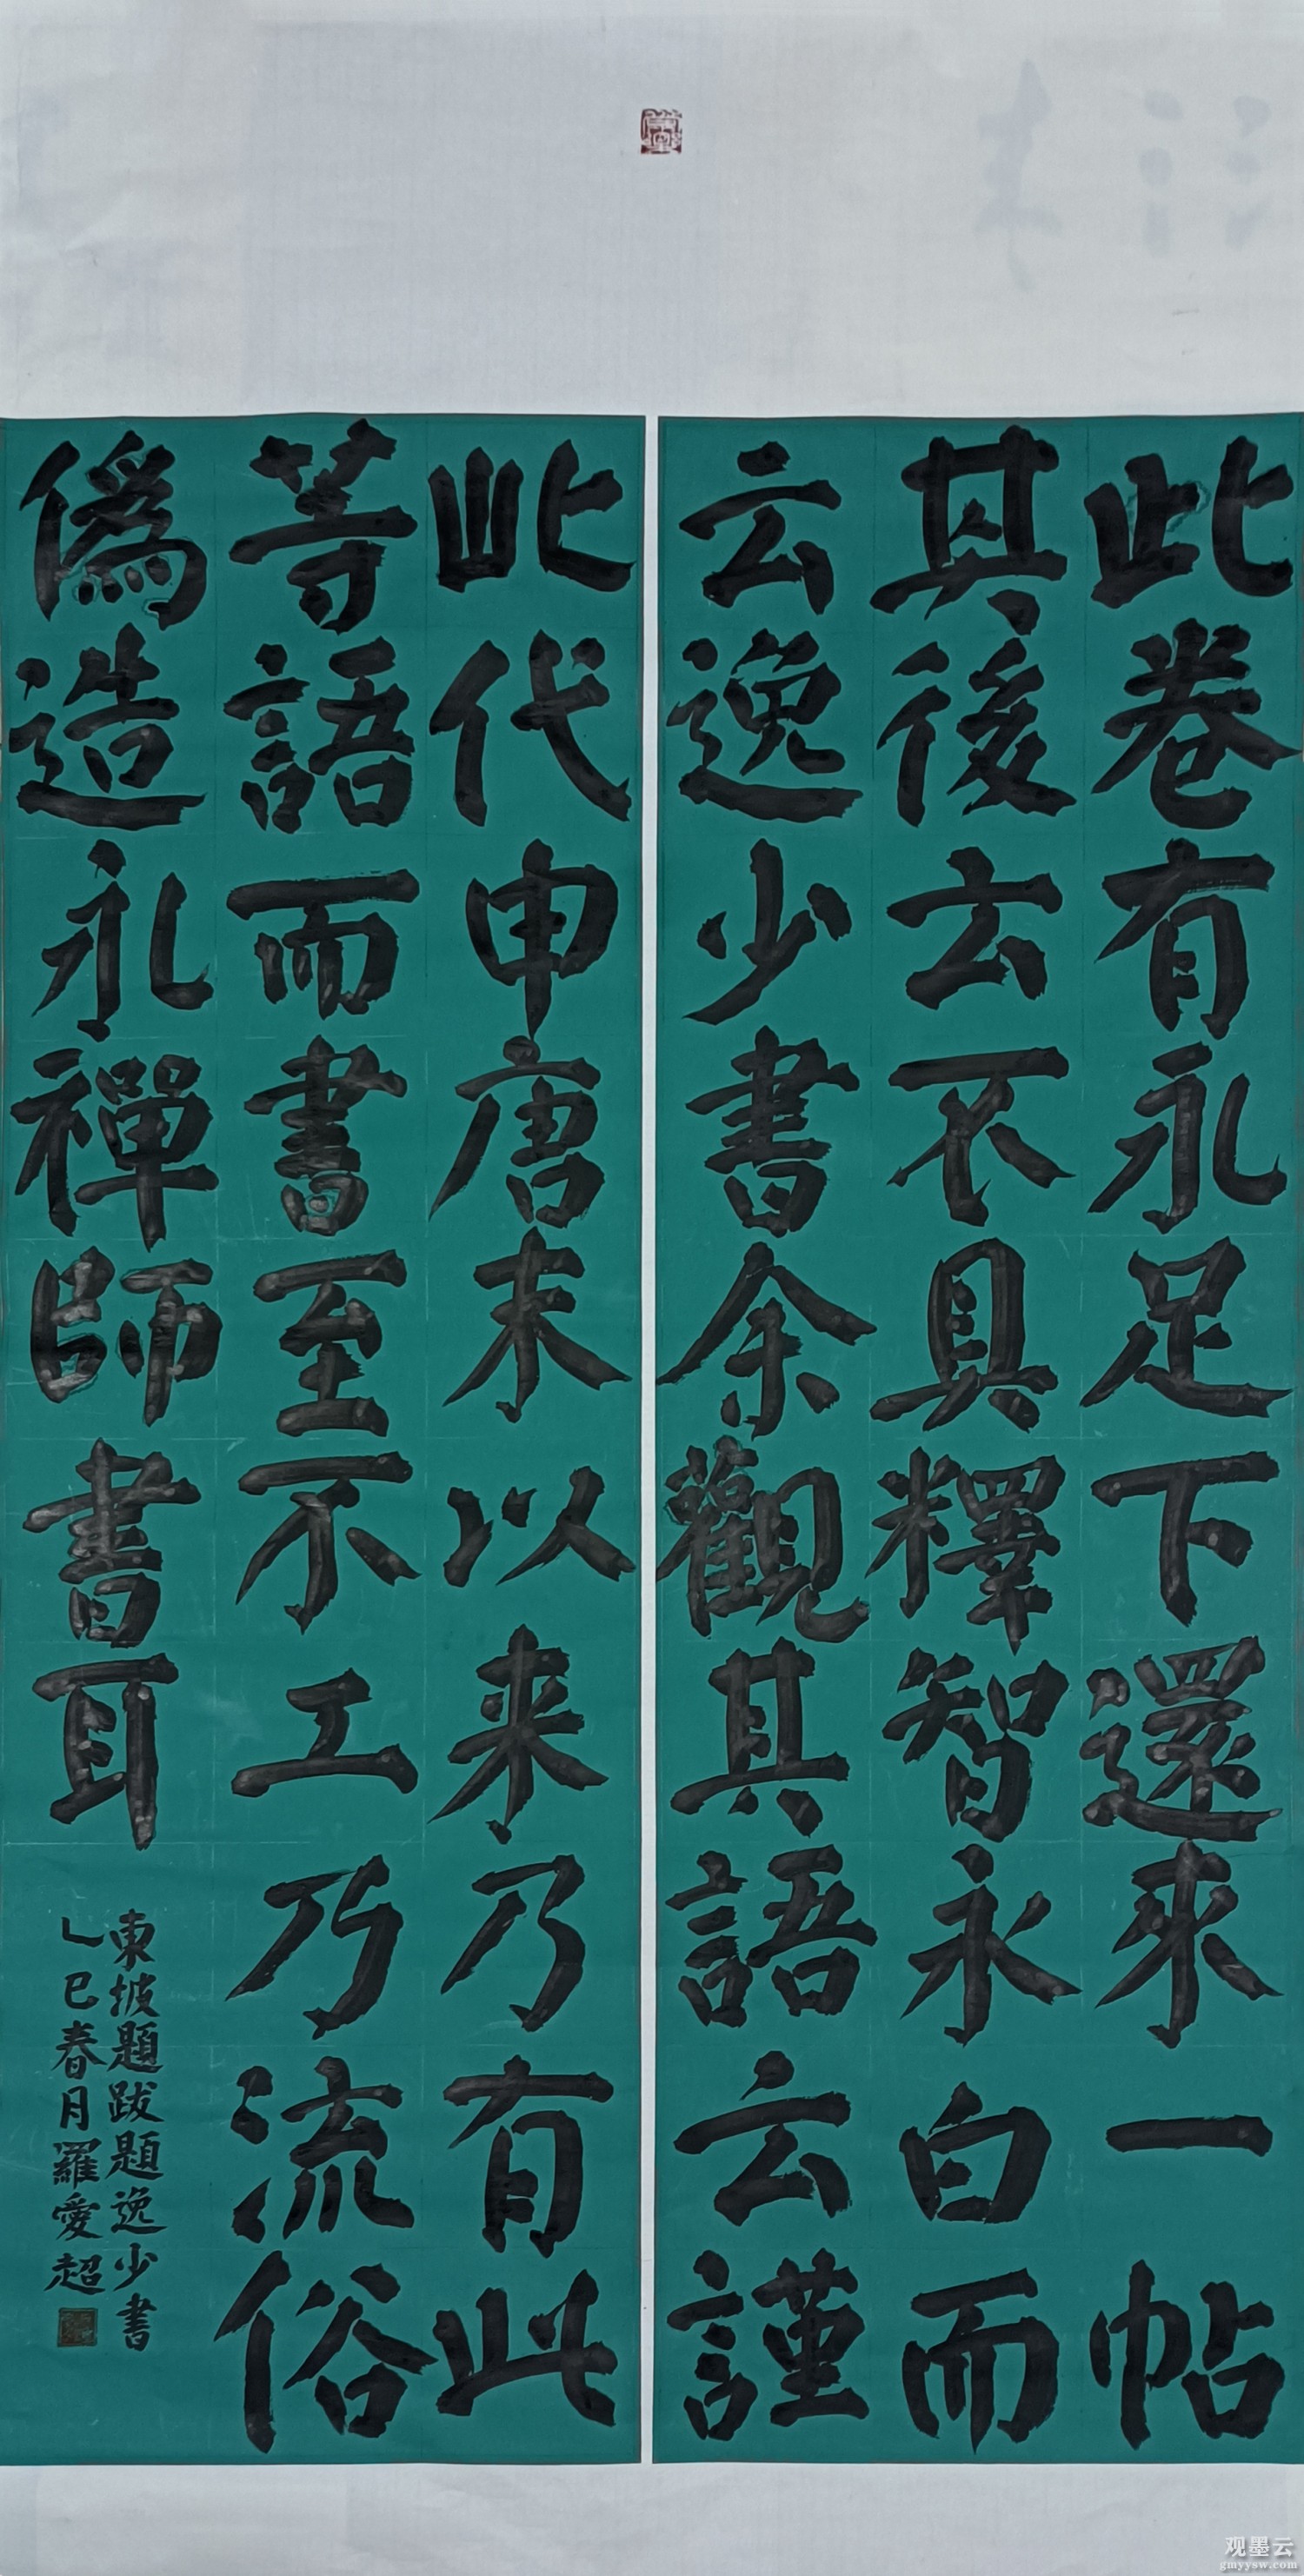 此卷有永足下還來一帖
其後云不具釋智永白而
云逸少書余觀其語云謹
此代申唐末以来乃有此
等語而書至不工乃流俗
偽造永禪師書耳
東坡題跋題逸少書
乙巳春月羅愛超
观墨云
gmyysw.com